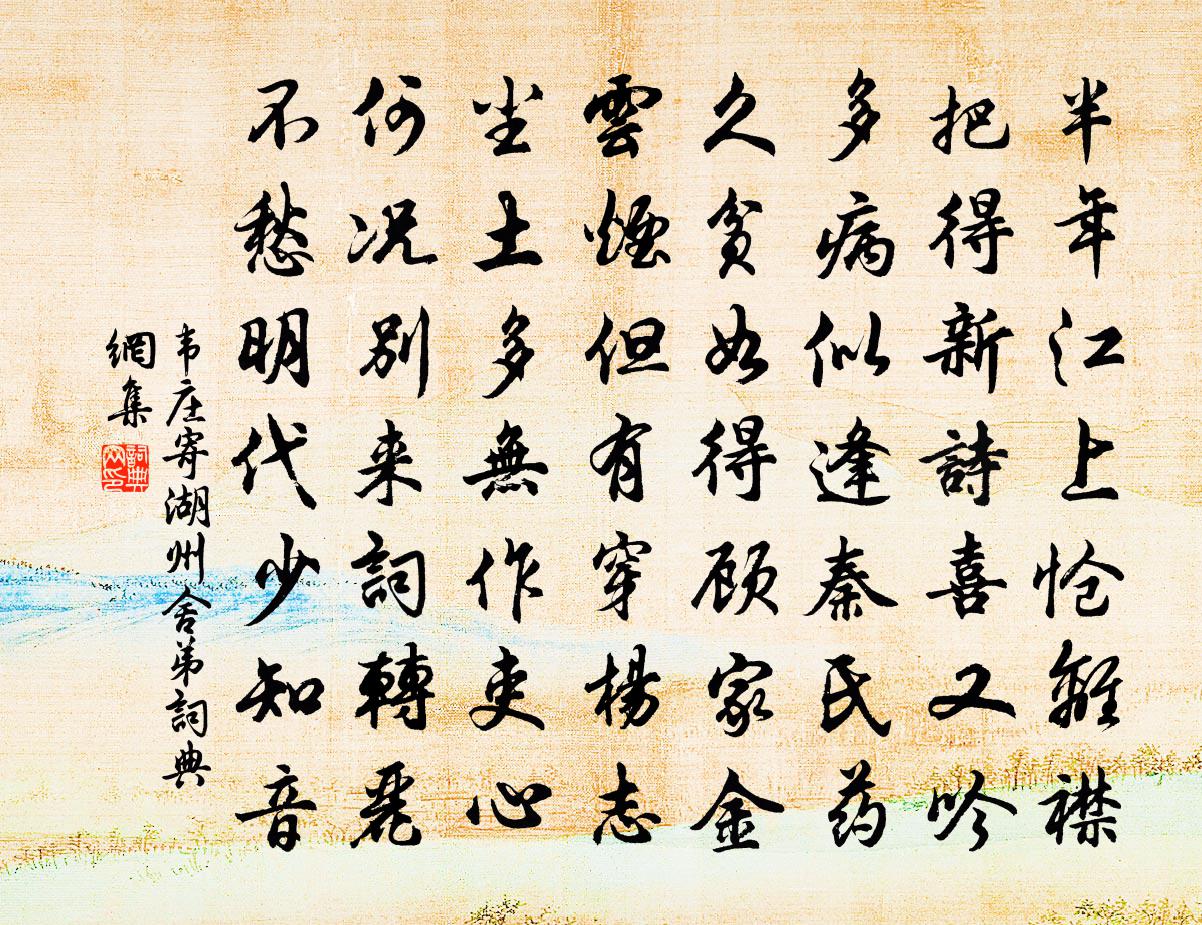 半年江上怆離襟
把得新詩喜又吟
多病似逢秦氏药
久贫如得顾家金
雲煙但有穿楊志
尘土多無作吏心
何况别来詞轉麗
不愁明代少知音
韦庄寄湖州舍弟詞典
網集
詞典
网印